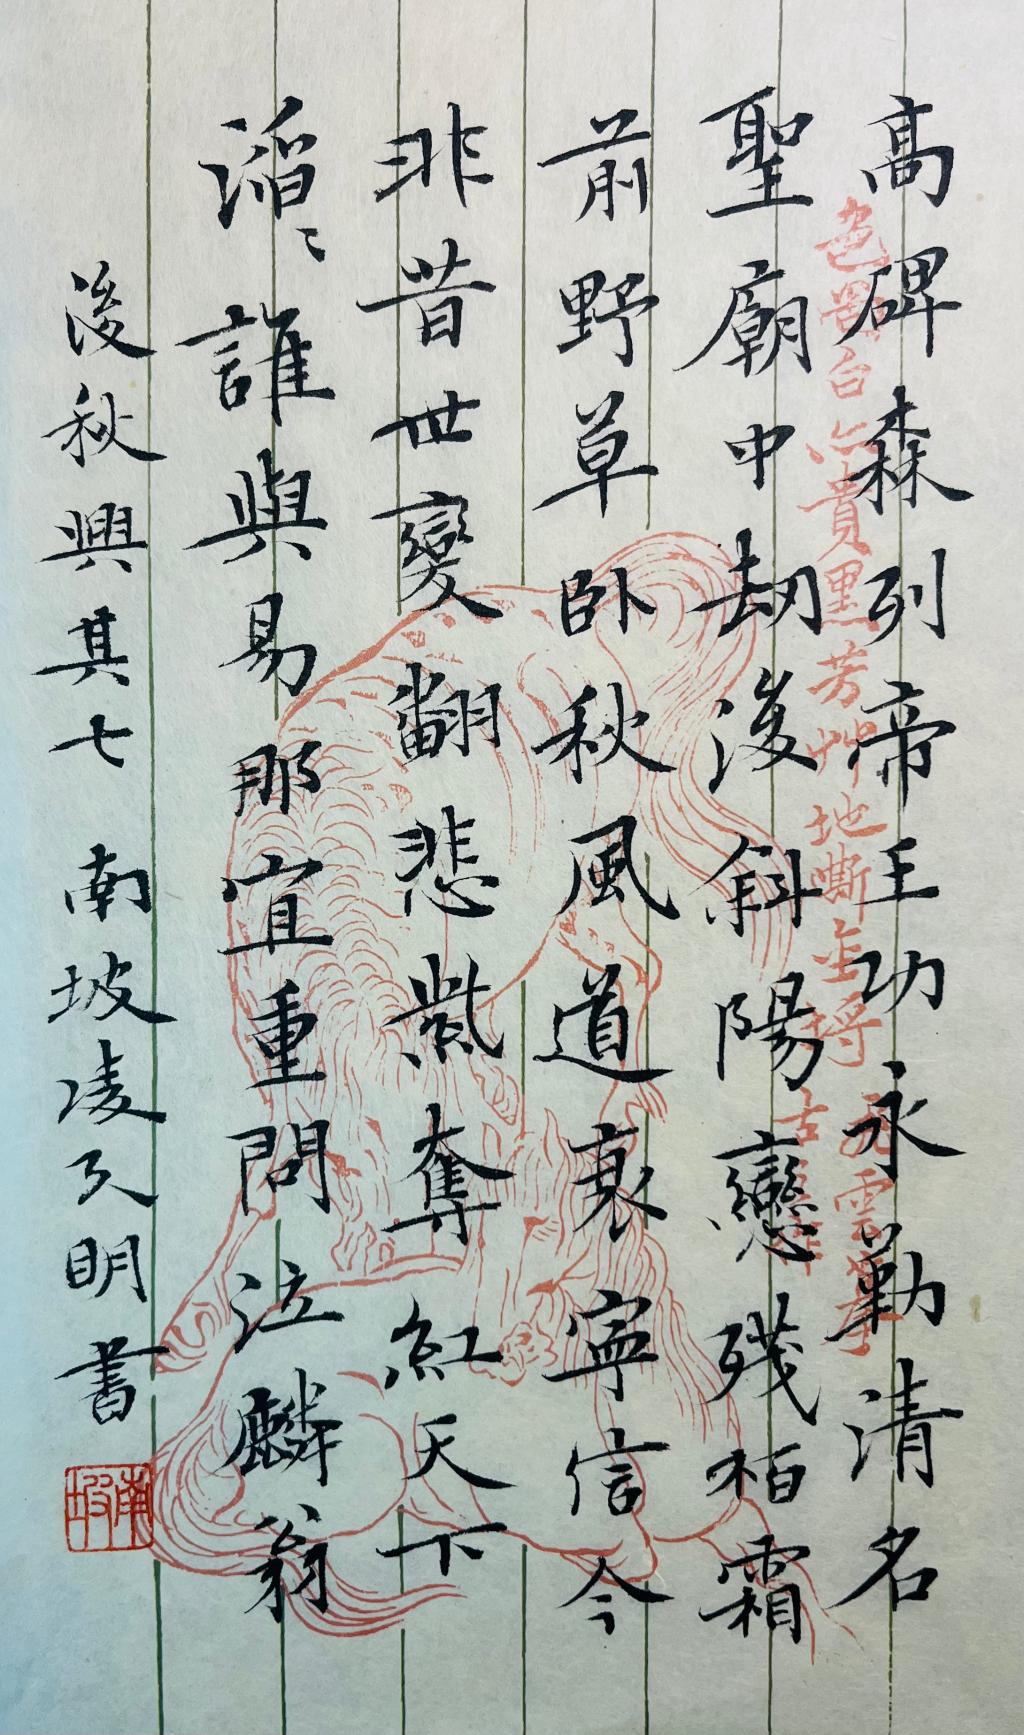 高碑森列帝王功永勒清名
聖廟中劫後斜陽戀殘栢霜
前野草卧秋風道衰寧信今
非昔世變翻悲紫奪紅天下
滔〻誰與易那宜重問泣麟翁
後秋興其七 南坡凌久明書
南坡